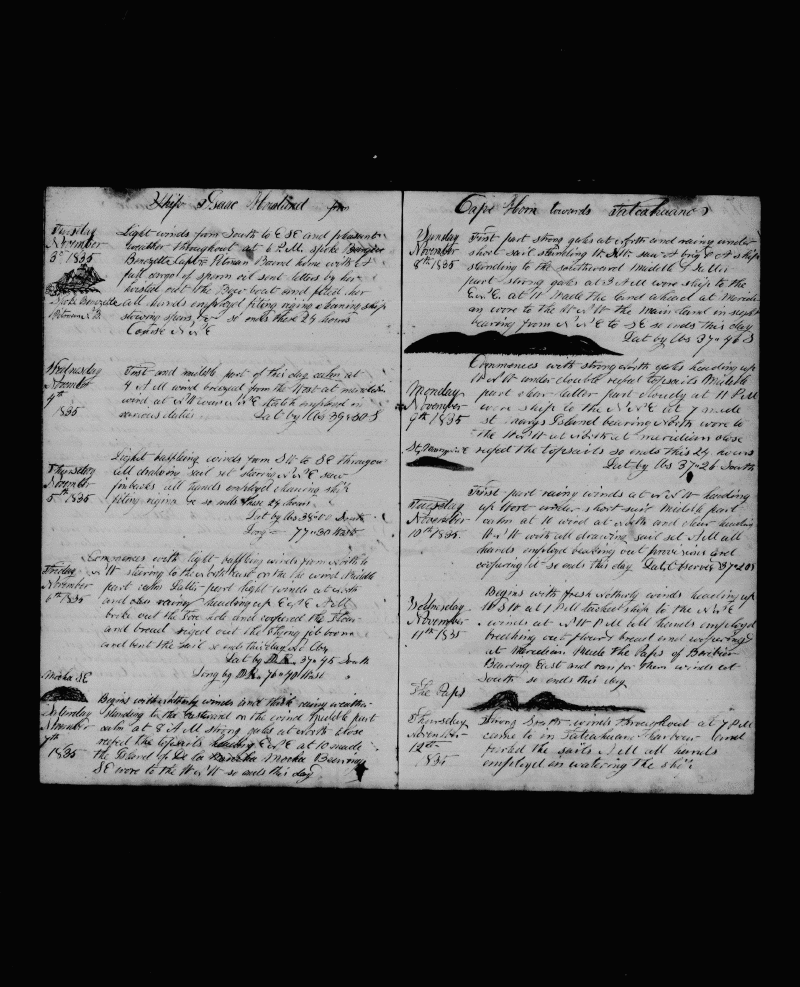 Ship Isaac Howland from
Tuesday
November
3d 1835
Light winds from South to E SE and pleasant
weather throughout at 6 P.M. spoke
Capt Bound home with a
full cargo of sperm oil sent letters by her
hoisted out the boat and
all hands employed fixing riging
spars so ends these 24 hours
Course N N E
Wednesday
November
4th
1835
First and middle part of this day calm at
4 A M wind breezed from the West at meridian
wind at employed in
various duties Lat by Obs 39=30 S
Thursday
November
5th 1835
Light baffling winds from S W to SE through out
all drawing sail set stearing N N E saw
finbacks all hands employd cleaning ship
fixing riging & so ends these 24 hours
Lat by Obs 38=00 South
Long = 77=30 West
Friday
November
6th 1835
Commences with light baffling winds from North to
N W stearing to the North East on the wind Middle
part calm Latter part light winds at North
and heading up
broke out the fore hole and coopered the Flour
and bread riged out the flying jib boom
and bent the sail so ends this day No Obs
Lat by D.R. 37=45 South
Long by D.R. 76=40 West
Mocha SE
Saturday
November
7th
1835
Begins with winds and thick rainy weather
standing to the Eastward on the wind Middle part
calm at 8 A M strong gales at North close
refed the topsails heading E N E at 10 made
the Island of Mocha Bearing
SE wore to the W N W so ends this day
Cape Horn towards Talcahuano
Sunday
November
8th 1835
First part strong gales at North and rainy under
short sail standing saw a brig & a ship
standing to the southward Middle & Latter
part strong gales at 3 A M wore ship to the
at 11 Made the land ahead at Meridi-
an wore to the W N W the Main land in sight
bearing from N N E to SE so ends this day
Lat by Obs 37=46 S
Monday
November
9th 1835
Commences with strong North gales heading up
W N W under double refed topsails Middle
part clear latter part cloudy at 11 P M
wore ship to the N N E at 7 made
St Marys Island bearing North wore to
the W N W at North at meridian close
refed the topsails so ends this 24 hours
Lat by Obs 37=26 South
Tuesday
November
10th 1835
First part rainy winds at N N W heading
up West under short sail Middle part
calm at 10 wind at North and clear heading
W N W with all drawing sail set All
hands employd breaking out provisions and
coopering it so ends this day Lat Observd 37=20 S
Wednesday
November
11th 1835
Begins with fresh Northerly winds heading up
W S W at 1 P M tacked ship to the N N E
winds at N W P M all hands employed
breaking out flour & bread and coopering
at Meridian Made the Paps of Biobio
Bearing East and ran for them winds at
South so ends this day
The Paps
Thursday
November
12th
1835
Strong South winds throughout at 7 P M
came to in Talcahuano Harbour and
furled the sails A M all hands
employd in watering the ship